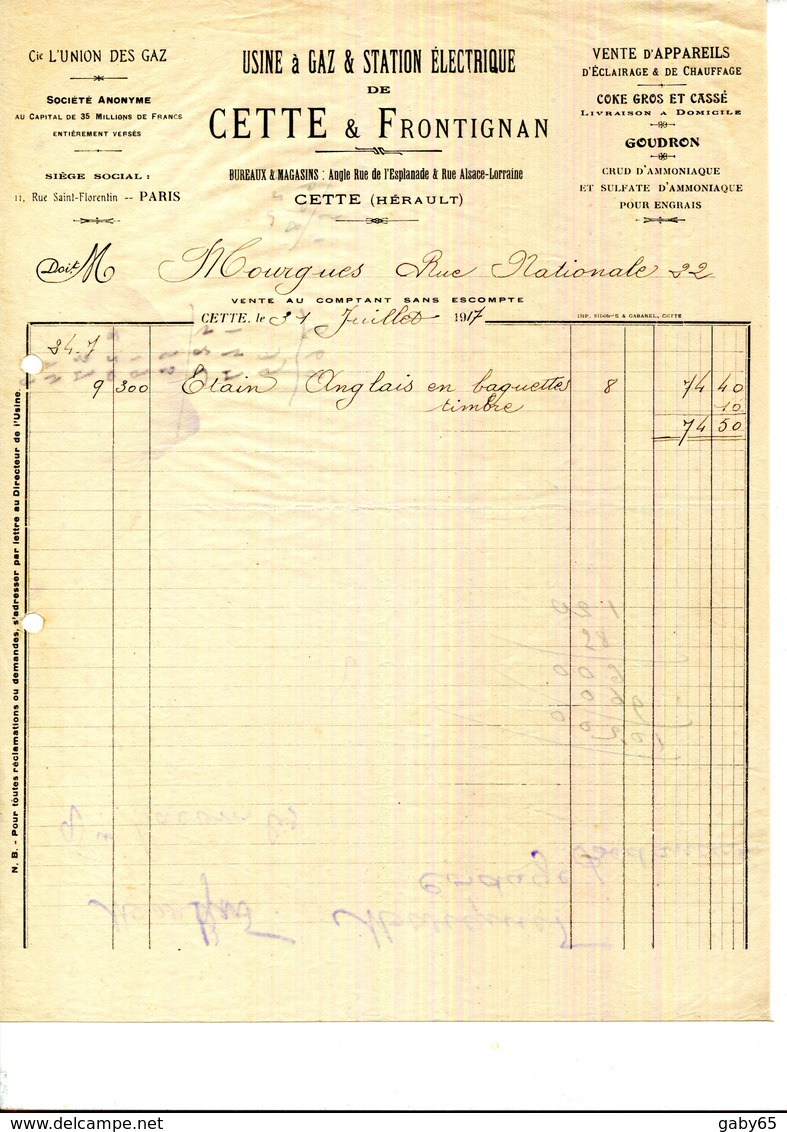 Cie L'UNION DES GAZ
SOCIÉTÉ ANONYME
AU CAPITAL DE 35 MILLIONS DE FRANCS
ENTIÈREMENT VERSÉS
SIÈGE SOCIAL :
11, Rue Saint-Florentin -- PARIS
USINE à GAZ & STATION ÉLECTRIQUE
DE
CETTE & FRONTIGNAN
BUREAUX & MAGASINS : Angle Rue de l'Esplanade & Rue Alsace-Lorraine
CETTE (HÉRAULT)
VENTE D'APPAREILS
D'ÉCLAIRAGE & DE CHAUFFAGE
COKE GROS ET CASSÉ
LIVRAISON A DOMICILE
GOUDRON
CRUD D'AMMONIAQUE
ET SULFATE D'AMMONIAQUE
POUR ENGRAIS
Doit M Mourgues Rue Nationale 22
VENTE AU COMPTANT SANS ESCOMPTE
CETTE, le 31 Juillet 1917
& GABANEL, CETTE
24.7
9 300 Etain Anglais en baguettes 8 74 40
timbre 10
74 50
N. B. - Pour toutes réclamations ou demandes, s'adresser par lettre au Directeur de l'Usine.
gaby65